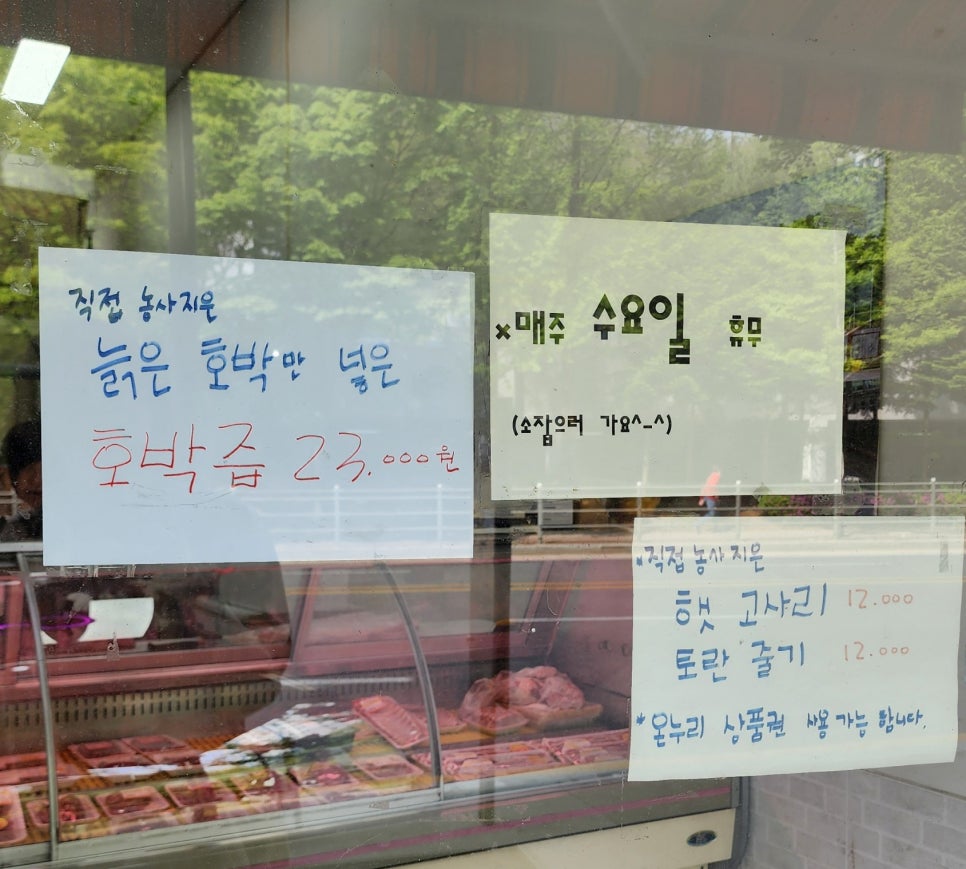 직접 농사지은
늙은 호박만 넣은
호박즙 23.000원
×매주 수요일 휴무
(소잡으러 가요^-^)
*직접농사지은
햇 고사리 12.000
토란 줄기 12.000
*온누리 상품권 사용가능 합니다.